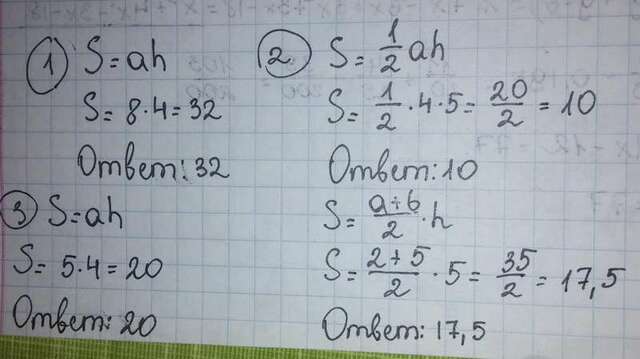 1 S = ah
S = 8 · 4 = 32
Ответ: 32
2. S = 1/2 ah
S = 1/2 · 4 · 5 = 20/2 = 10
Ответ: 10
3 S = ah
S = 5 · 4 = 20
Ответ: 20
S = a+b/2 · h
S = 2+5/2 · 5 = 35/2 = 17,5
Ответ: 17,5